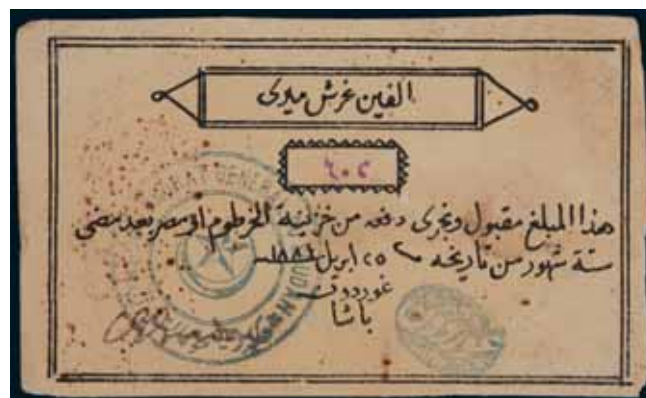 الفين غرش ميرى
٦٠٢
هذا المبلغ مقبول ويجرى دفعه من خزينة الخرطوم او مصر بعد مضى
ستة شهور من تاريخه ٢٥ ابريل ١٨٨٤
غوردون
باشا